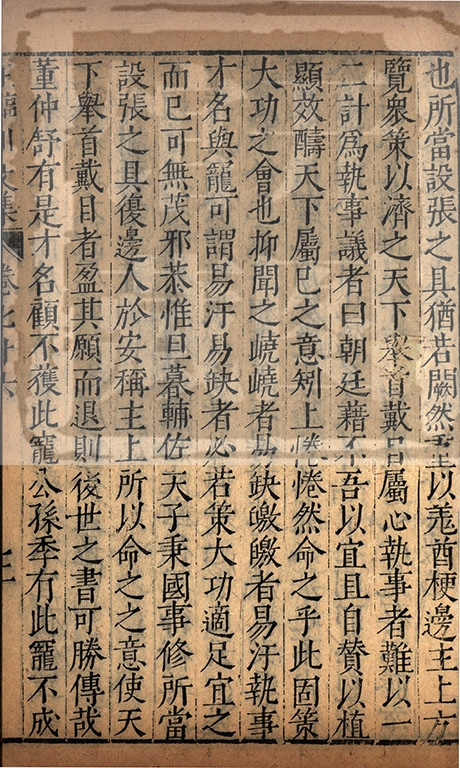 也所當設張之具猶若闕然重以羗酋梗邊主上方
覽衆策以濟之天下舉首戴目屬心執事者難以一
二計爲執事議者曰朝廷藉不吾以宜且自贊以植
顯效醻天下屬巳之意矧上惓惓然命之乎此固策
大功之會也抑聞之嶢嶢者易缺皦皦者易汙執事
才名與寵可謂易汙易缺者必若策大功適足宜之
而巳可無茂邪恭惟旦暮輔佐天子秉國事修所當
設張之具復邊人於安稱主上所以命之之意使天
下舉首戴目者盈其願而退則後世之書可勝傳哉
董仲舒有是才名顧不獲此寵公孫季有此寵不成
臨川文集 卷七十六